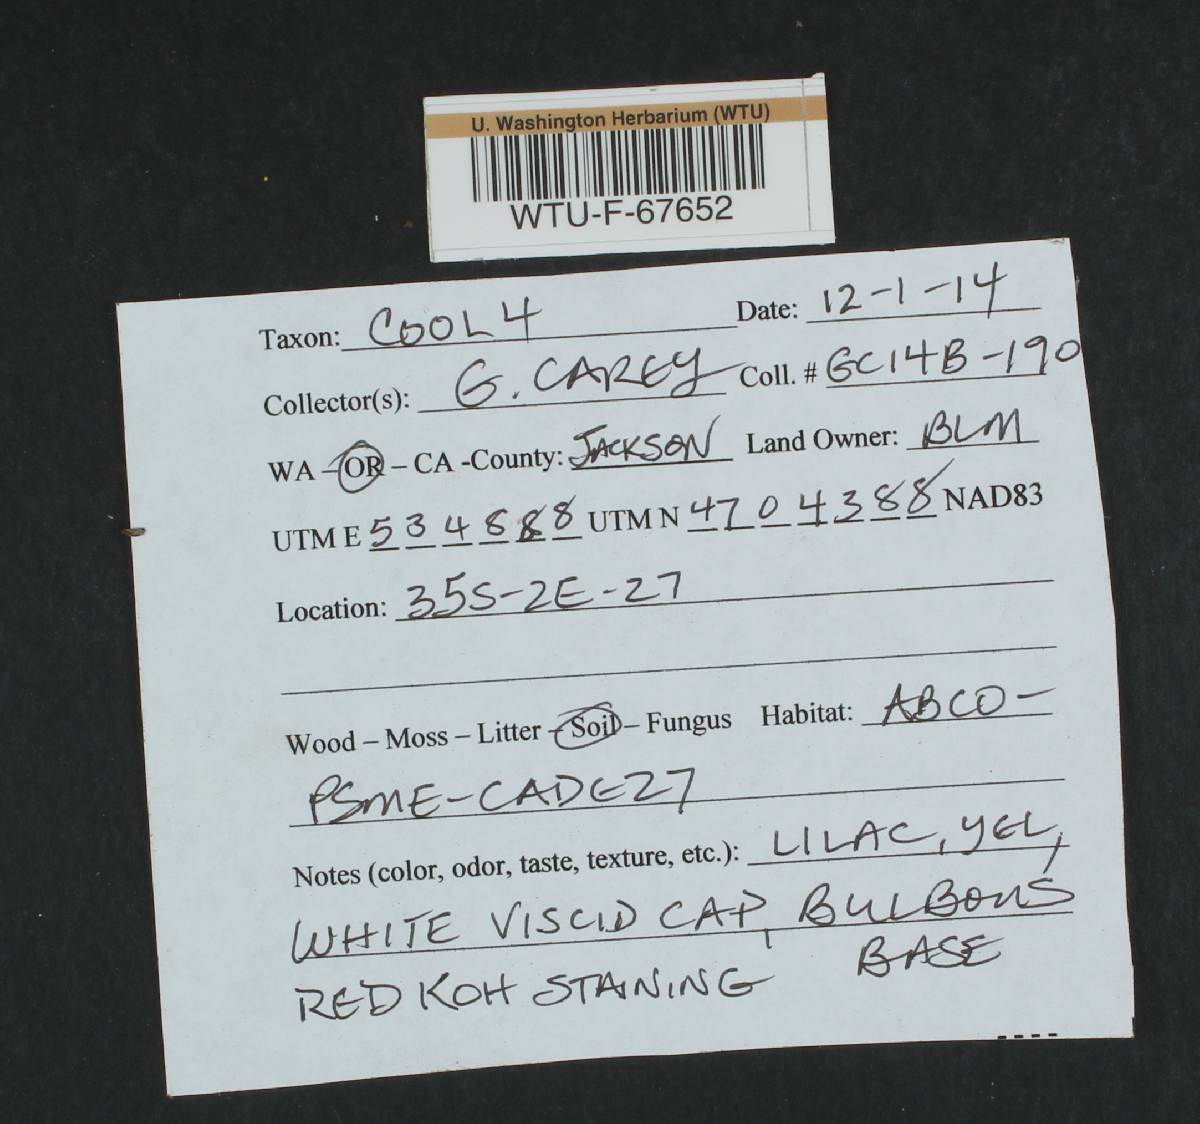 U. Washington Herbarium (WTU)
WTU-F-67652
Taxon: COOL4 Date: 12-1-14
Collector(s): G. CAREY Coll. # GC14B-190
WA – OR – CA -County: JACKSON Land Owner: BLM
UTM E 534888 UTM N 4704388 NAD83
Location: 35S-2E-27
Wood – Moss – Litter – Soil – Fungus Habitat: ABCO-
PSME-CADE27
Notes (color, odor, taste, texture, etc.): LILAC, YEL,
WHITE VISCID CAP, BULBOUS
BASE
RED KOH STAINING